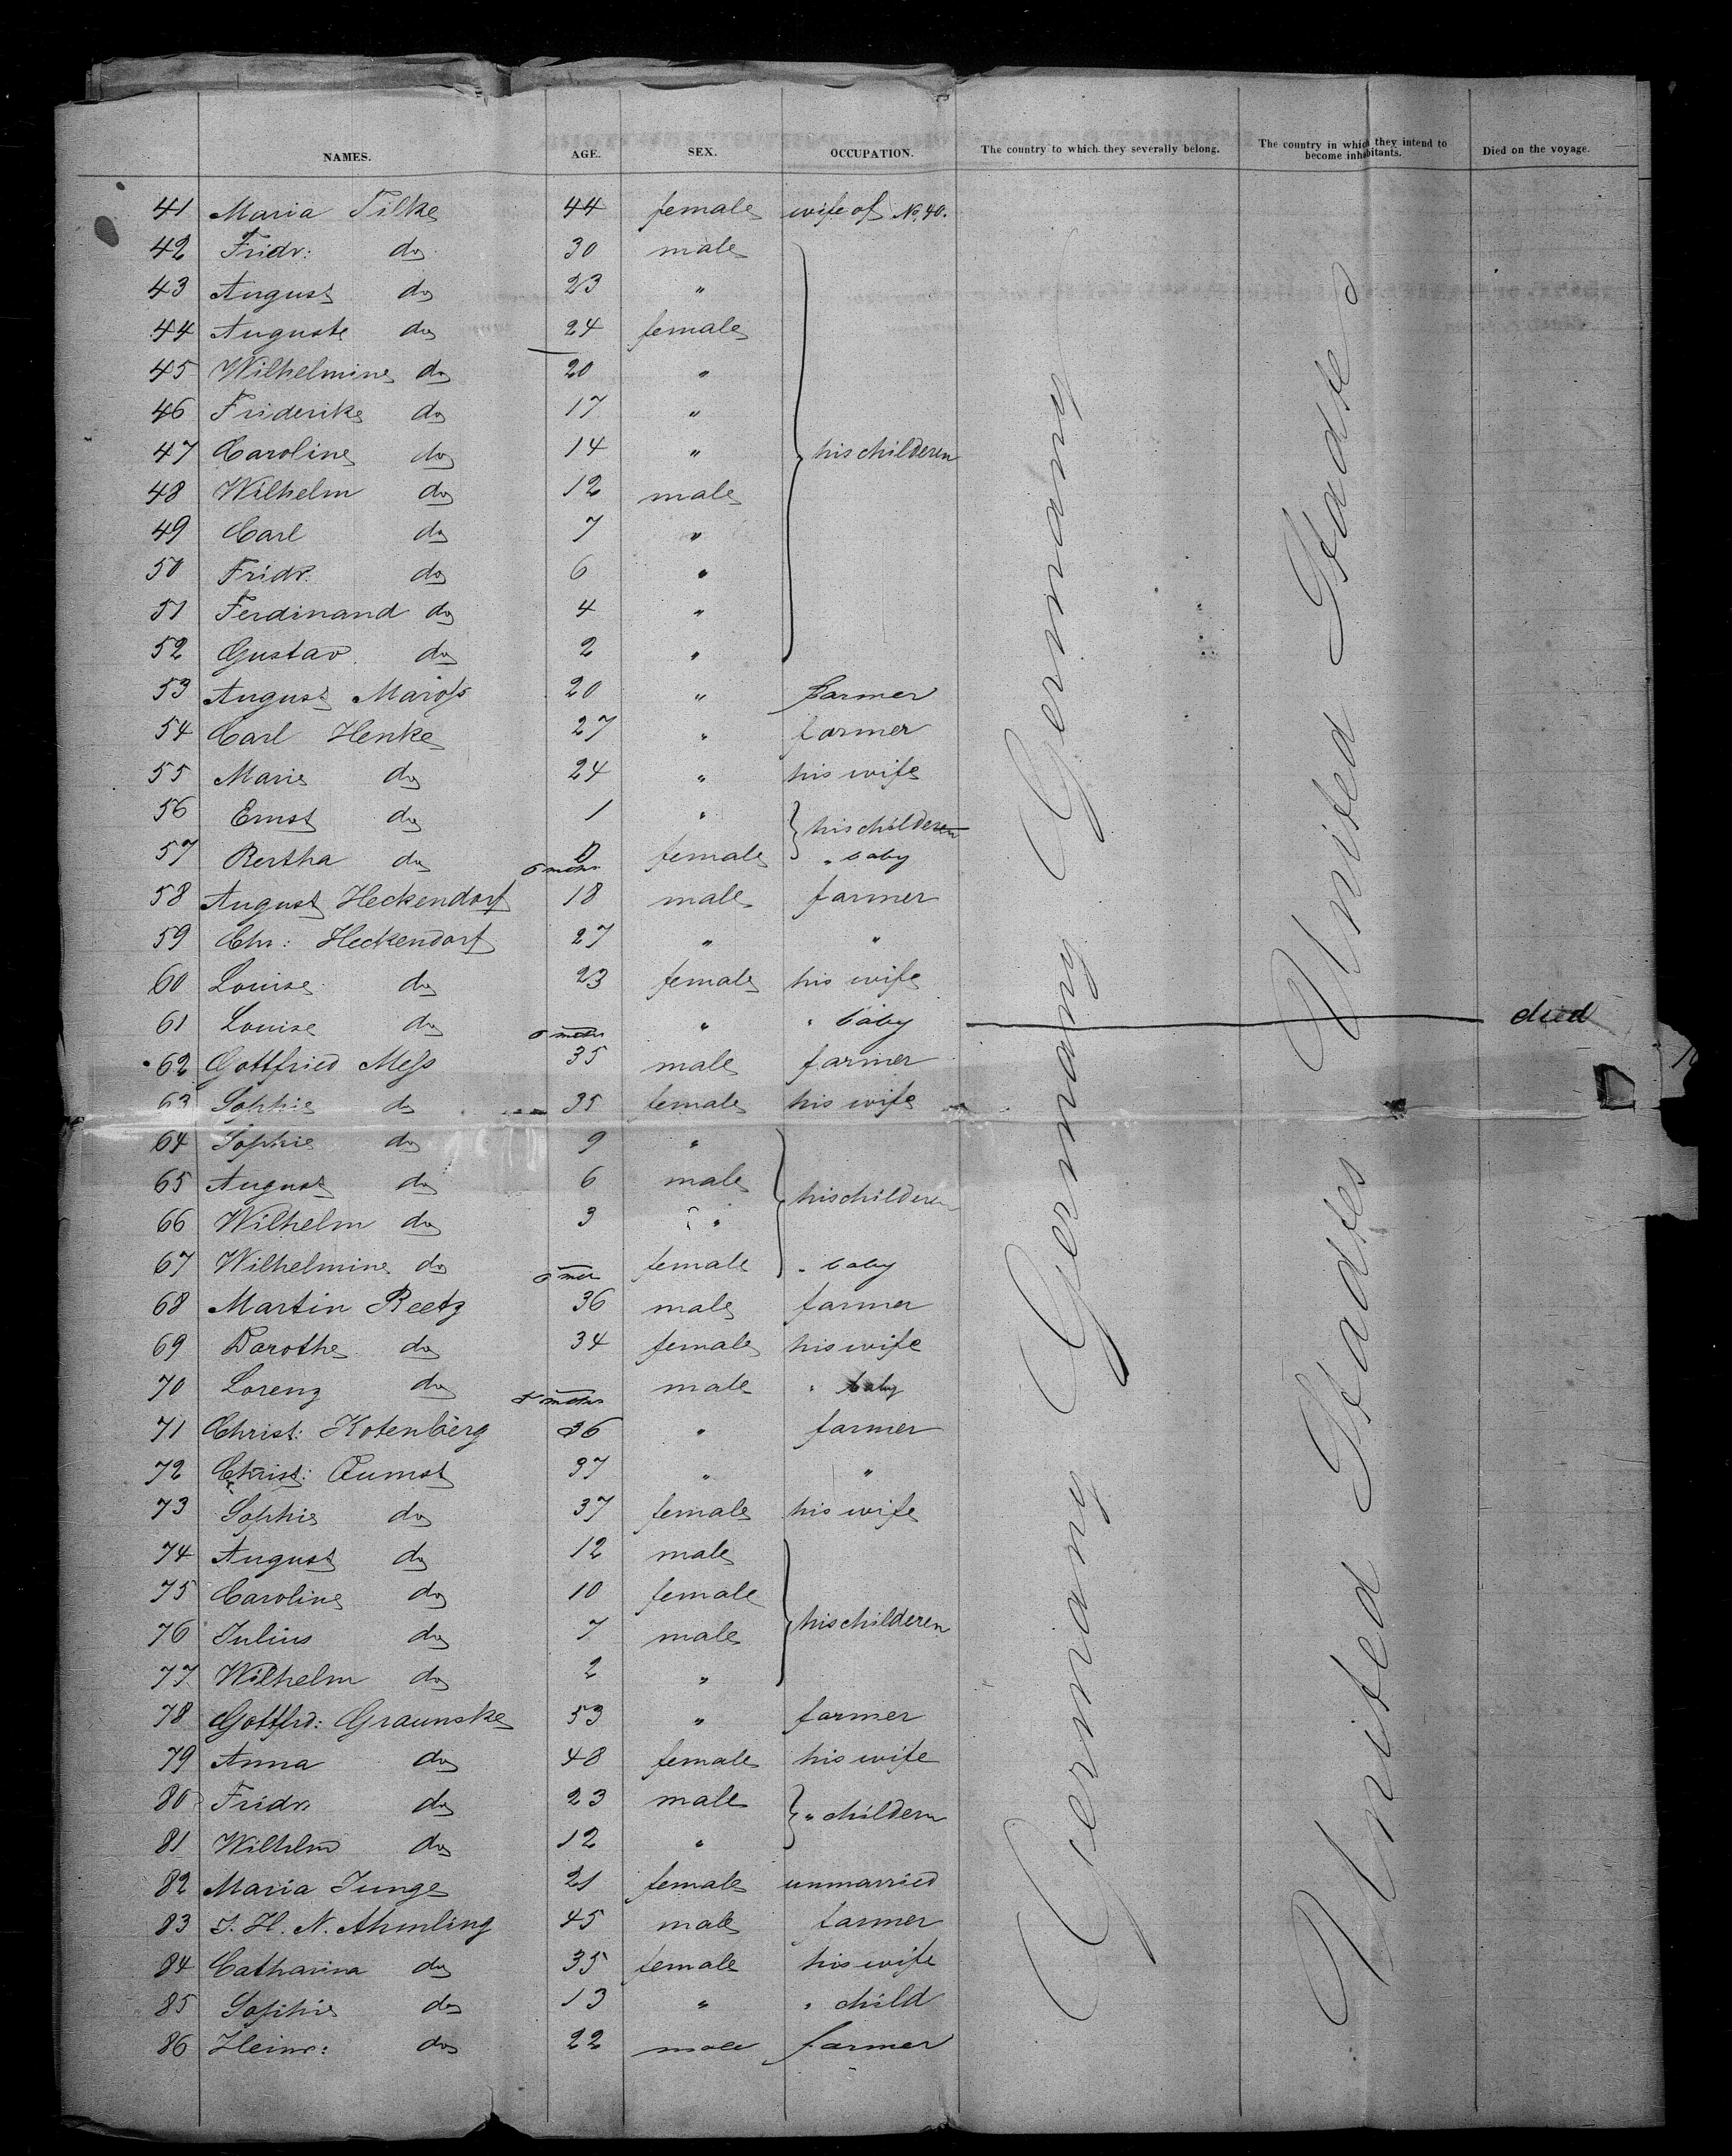 NAMES. AGE. SEX. OCCUPATION. The country to which they severally belong. The country in which they intend to become inhabitants. Died on the voyage.
41 Maria Tilke 44 female wife of No. 40.
42 Fridr: do 30 male
43 August do 23 "
44 Auguste do 24 female
45 Wilhelmine do 20 "
46 Friderike do 17 "
47 Caroline do 14 " his childeren
48 Wilhelm do 12 male
49 Carl do 7 "
50 Fridr. do 6 "
51 Ferdinand do 4 "
52 Gustav do 2 "
53 August 20 " farmer
54 Carl Henke 27 " farmer
55 Marie do 24 " his wife
56 Ernst do 1 " his childeren
57 Bertha do female " baby
58 August Heckendorf 18 male farmer
59 Chr: Heckendorf 27 " "
60 Louise do 23 female his wife
61 Louise do " " baby died
62 Gottfried Mess 35 male farmer
63 Sophie do 35 female his wife
64 Sophie do 9 "
65 August do 6 male his childeren
66 Wilhelm do 3 "
67 Wilhelmine do female " baby
68 Martin Reetz 36 male farmer
69 Dorothe do 34 female his wife
70 Lorenz do male " baby
71 Christ: Kotenberg 36 " farmer
72 Christ: 37 " "
73 Sophie do 37 female his wife
74 August do 12 male
75 Caroline do 10 female
76 Julius do 7 male his childeren
77 Wilhelm do 2 "
78 Gottfrd: Graunske 53 " farmer
79 Anna do 48 female his wife
80 Fridr do 23 male " childern
81 Wilhelm do 12 "
82 Maria Junge 21 female unmarried
83 J. H. N. Ahmling 45 male farmer
84 Catharina do 35 female his wife
85 Sophie do 13 " " child
86 Heinr: do 22 male farmer
Germany Germany Germany Germany
United Stades United Stadtes